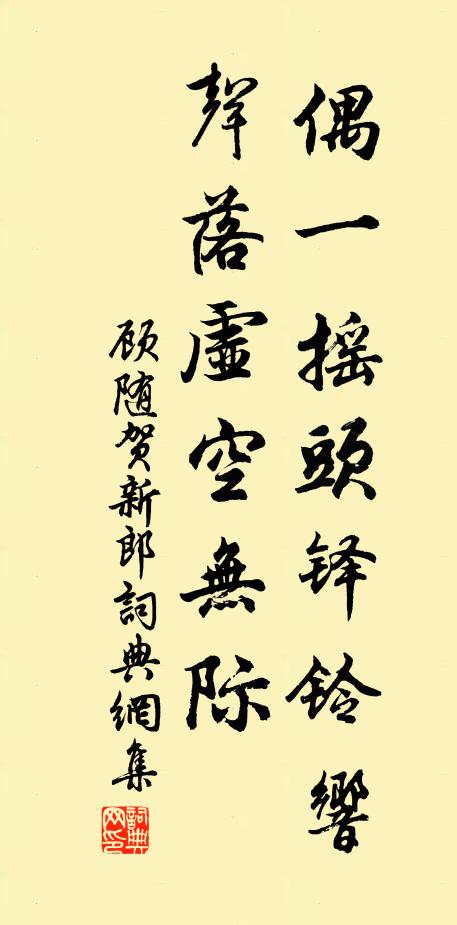 偶一摇頭铎铃響
聲落虛空無际
顾随贺新郎詞典網集
詞典网印